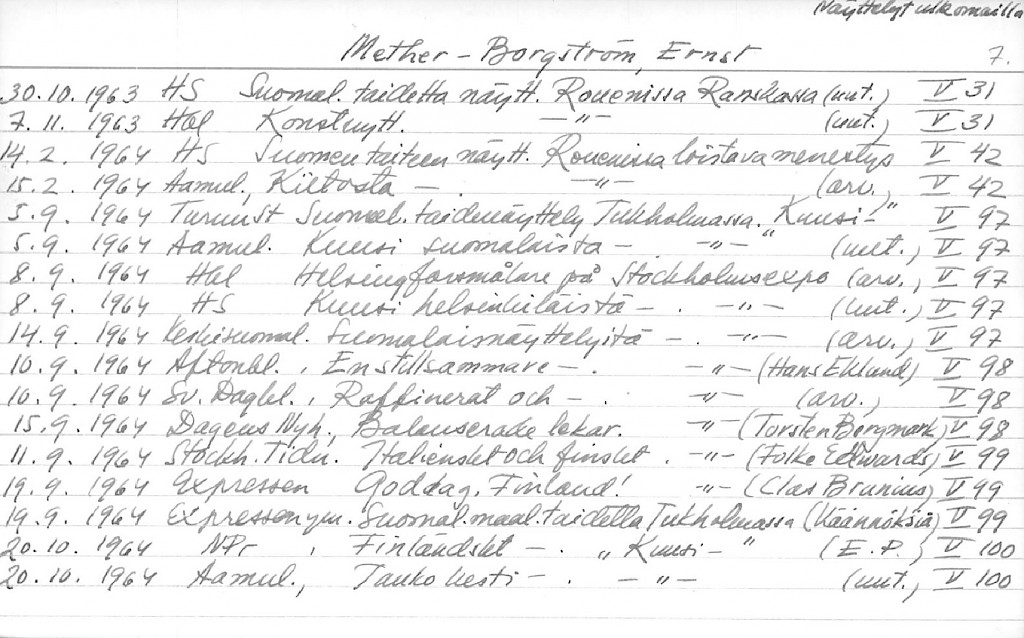 Näyttelyt ulkomailla
Mether-Borgström, Ernst 7.
30.10.1963 HS Suomal. taidetta näytt. Rouenissa Ranskassa (uut.) V 31
7.11.1963 Hbl Konstnytt. -"- (uut.) V 31
14.2.1964 HS Suomen taiteen näytt. Rouenissa loistava menestys V 42
15.2.1964 Aamul., Kiitosta - . -"- (arv.) V 42
5.9.1964 TurunSt Suomal. taidenäyttely Tukholmassa. "Kuusi-" V 97
5.9.1964 Aamul. Kuusi suomalaista - -"- (uut.) V 97
8.9.1964 Hbl Helsingforsmålare på Stockholmsexpo (arv.) V 97
8.9.1964 HS Kuusi helsinkiläistä - . -"- (uut.) V 97
14.9.1964 Keskisuomal. Suomalaisnäyttelyitä - . -"- (arv.) V 97
10.9.1964 Aftonbl., En stillsammare - . -"- (Hans Eklund) V 98
10.9.1964 Sv. Dagbl., Raffinerat och - . -"- (arv.) V 98
15.9.1964 Dagens Nyh., Balanserade lekar. -"- (Torsten Bergmark) V 98
11.9.1964 Stockh. Tidn. Italienskt och finskt. -"- (Folke Edwards) V 99
19.9.1964 Expressen Goddag, Finland! -"- (Clas Brunius) V 99
19.9.1964 Expressen ym. Suomal. maal. taidetta Tukholmassa (Käännöksiä) V 99
20.10.1964 NPr, Finländskt - . "Kuusi-" (E.P.) V 100
20.10.1964 Aamul., - . -"- (uut.) V 100